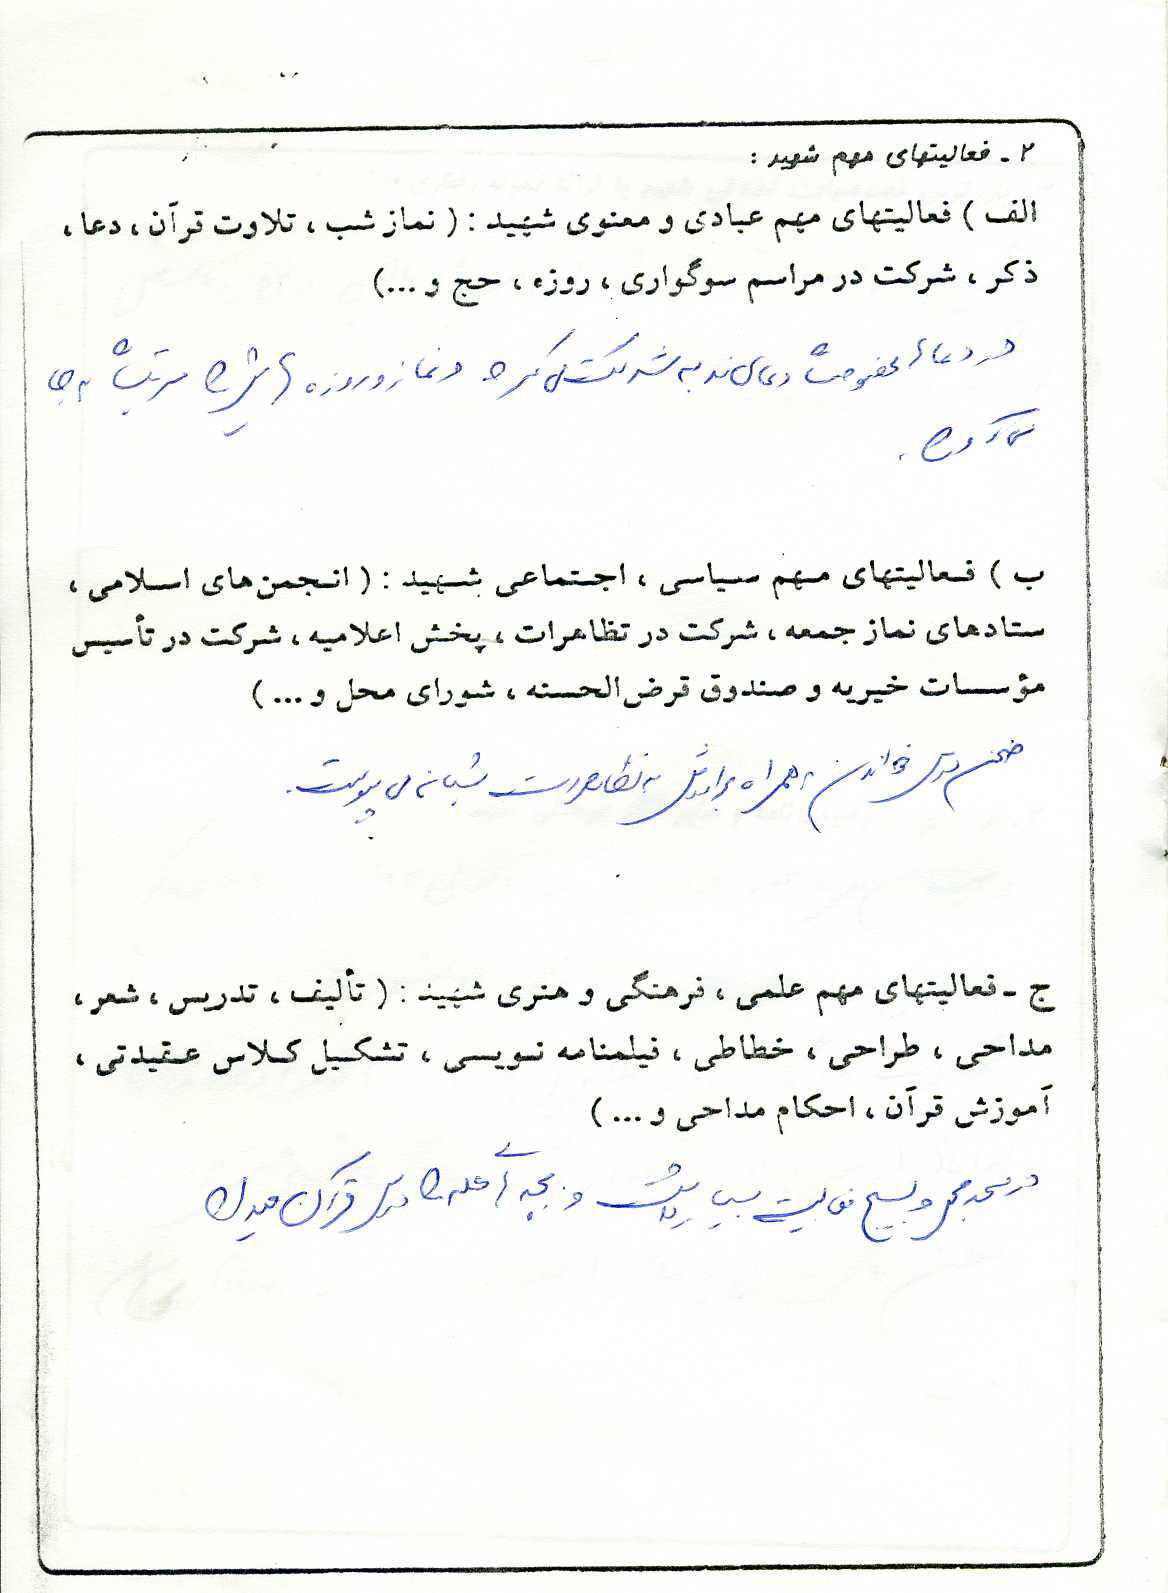 ۲ ـ فعالیتهای مهم شهید :
الف ) فعالیتهای مهم عبادی و معنوی شهید : ( نماز شب ، تلاوت قرآن ، دعا ،
ذکر ، شرکت در مراسم سوگواری ، روزه ، حج و ... )
در دعاها مخصوصاً دعای ندبه شرکت می کرد و نماز و روزه هایش را مرتباً به جا
می آورد .
ب ) فعالیتهای مهم سیاسی ، اجتماعی شهید : ( انجمن های اسلامی ،
ستادهای نماز جمعه ، شرکت در تظاهرات ، پخش اعلامیه ، شرکت در تأسیس
مؤسسات خیریه و صندوق قرض الحسنه ، شورای محل و ... )
ضمن درس خواندن همراه برادرش به تظاهرات شبانه می پیوست .
ج ـ فعالیتهای مهم علمی ، فرهنگی و هنری شهید : ( تألیف ، تدریس ، شعر ،
مداحی ، طراحی ، خطاطی ، فیلمنامه نویسی ، تشکیل کلاس عقیدتی ،
آموزش قرآن ، احکام مداحی و ... )
در مسجد محل و بسیج فعالیت بسیار داشت و بچه های محله را درس قرآن میداد